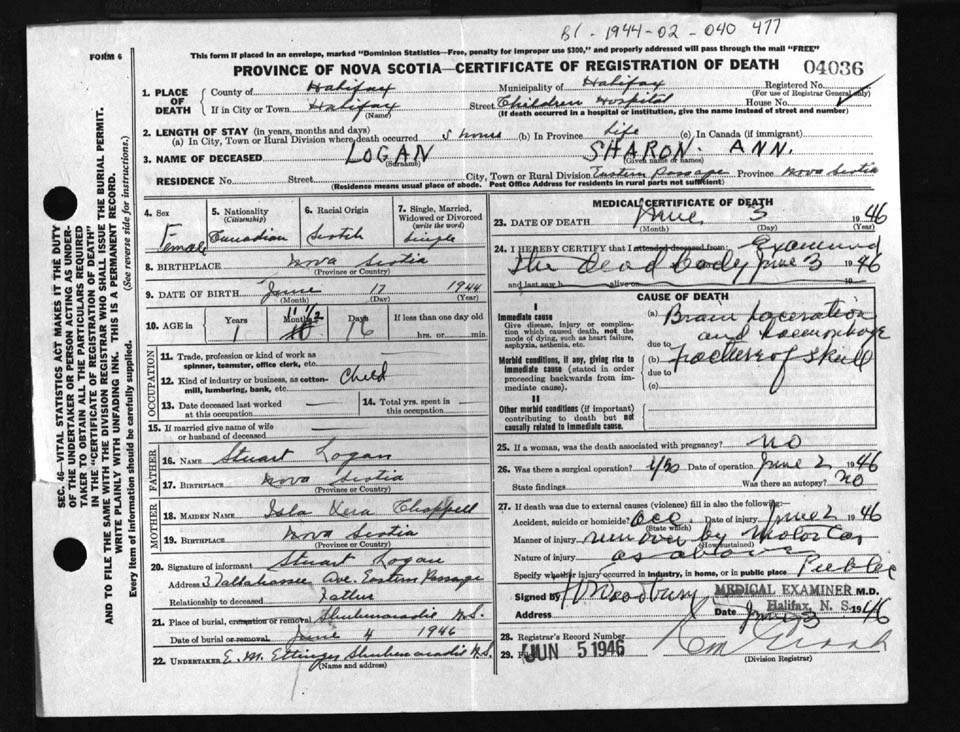 B1-1944-02-040477
FORM 6
This form if placed in an envelope, marked "Dominion Statistics—Free, penalty for improper use $300," and properly addressed will pass through the mail "FREE"
PROVINCE OF NOVA SCOTIA—CERTIFICATE OF REGISTRATION OF DEATH 04036
1. PLACE OF DEATH
County of Halifax Municipality of Halifax Registered No.
(For use of Registrar General only)
If in City or Town Halifax Street Children Hospital House No.
(Name) (If death occurred in a hospital or institution, give the name instead of street and number)
2. LENGTH OF STAY (in years, months and days)
(a) In City, Town or Rural Division where death occurred 5 hours (b) In Province Life (c) In Canada (if immigrant)
3. NAME OF DECEASED LOGAN SHARON ANN.
(Surname) (Given name or names)
RESIDENCE No. Street City, Town or Rural Division Eastern Passage Province Nova Scotia
(Residence means usual place of abode. Post Office Address for residents in rural parts not sufficient)
4. Sex Female
5. Nationality (Citizenship) Canadian
6. Racial Origin Scotch
7. Single, Married, Widowed or Divorced (write the word) Single
8. BIRTHPLACE Nova Scotia
(Province or Country)
9. DATE OF BIRTH June 17 1944
(Month) (Day) (Year)
10. AGE in Years Months Days If less than one day old
1 11 16 hrs. or min.
OCCUPATION
11. Trade, profession or kind of work as spinner, teamster, office clerk, etc.
12. Kind of industry or business, as cotton-mill, lumbering, bank, etc. Child
13. Date deceased last worked at this occupation
14. Total yrs. spent in this occupation
15. If married give name of wife or husband of deceased
FATHER
16. NAME Stuart Logan
17. BIRTHPLACE Nova Scotia
(Province or Country)
MOTHER
18. MAIDEN NAME Isla Vera Chappell
19. BIRTHPLACE Nova Scotia
(Province or Country)
20. Signature of informant Stuart Logan
Address 3 Tallahassee Ave. Eastern Passage
Relationship to deceased Father
21. Place of burial, cremation or removal Shubenacadie N.S.
Date of burial or removal June 4 1946
22. UNDERTAKER E. M. Ettinger Shubenacadie N.S.
(Name and address)
MEDICAL CERTIFICATE OF DEATH
23. DATE OF DEATH June 3 1946
(Month) (Day)
24. I HEREBY CERTIFY that I attended deceased from: Examined
the Dead body June 3 1946
and last saw h alive on 19
CAUSE OF DEATH
I
Immediate cause
Give disease, injury or complication which caused death, not the mode of dying, such as heart failure, asphyxia, asthenia, etc.
(a) Brain Laceration
and Haemorrhage
due to
Morbid conditions, if any, giving rise to immediate cause (stated in order proceeding backwards from immediate cause).
(b) Fracture of Skull
due to
(c)
II
Other morbid conditions (if important) contributing to death but not causally related to immediate cause.
25. If a woman, was the death associated with pregnancy? no
26. Was there a surgical operation? yes Date of operation June 2 1946
State findings Was there an autopsy? no
27. If death was due to external causes (violence) fill in also the following:—
Accident, suicide or homicide? acc. Date of injury June 2 1946
(State which)
Manner of injury run over by Motor Car
(How sustained)
Nature of injury as above
Specify whether injury occurred in industry, in home, or in public place Public
Signed by Woodbury MEDICAL EXAMINER M.D.
Address Date June 3 Halifax, N. S. 1946
28. Registrar's Record Number
29. JUN 5 1946
(Division Registrar)
SEC. 46—VITAL STATISTICS ACT MAKES IT THE DUTY OF THE UNDERTAKER OR PERSON ACTING AS UNDERTAKER TO OBTAIN ALL THE PARTICULARS REQUIRED IN THE "CERTIFICATE OF REGISTRATION OF DEATH"
AND TO FILE THE SAME WITH THE DIVISION REGISTRAR WHO SHALL ISSUE THE BURIAL PERMIT.
WRITE PLAINLY WITH UNFADING INK. THIS IS A PERMANENT RECORD.
Every item of information should be carefully supplied. (See reverse side for instructions.)